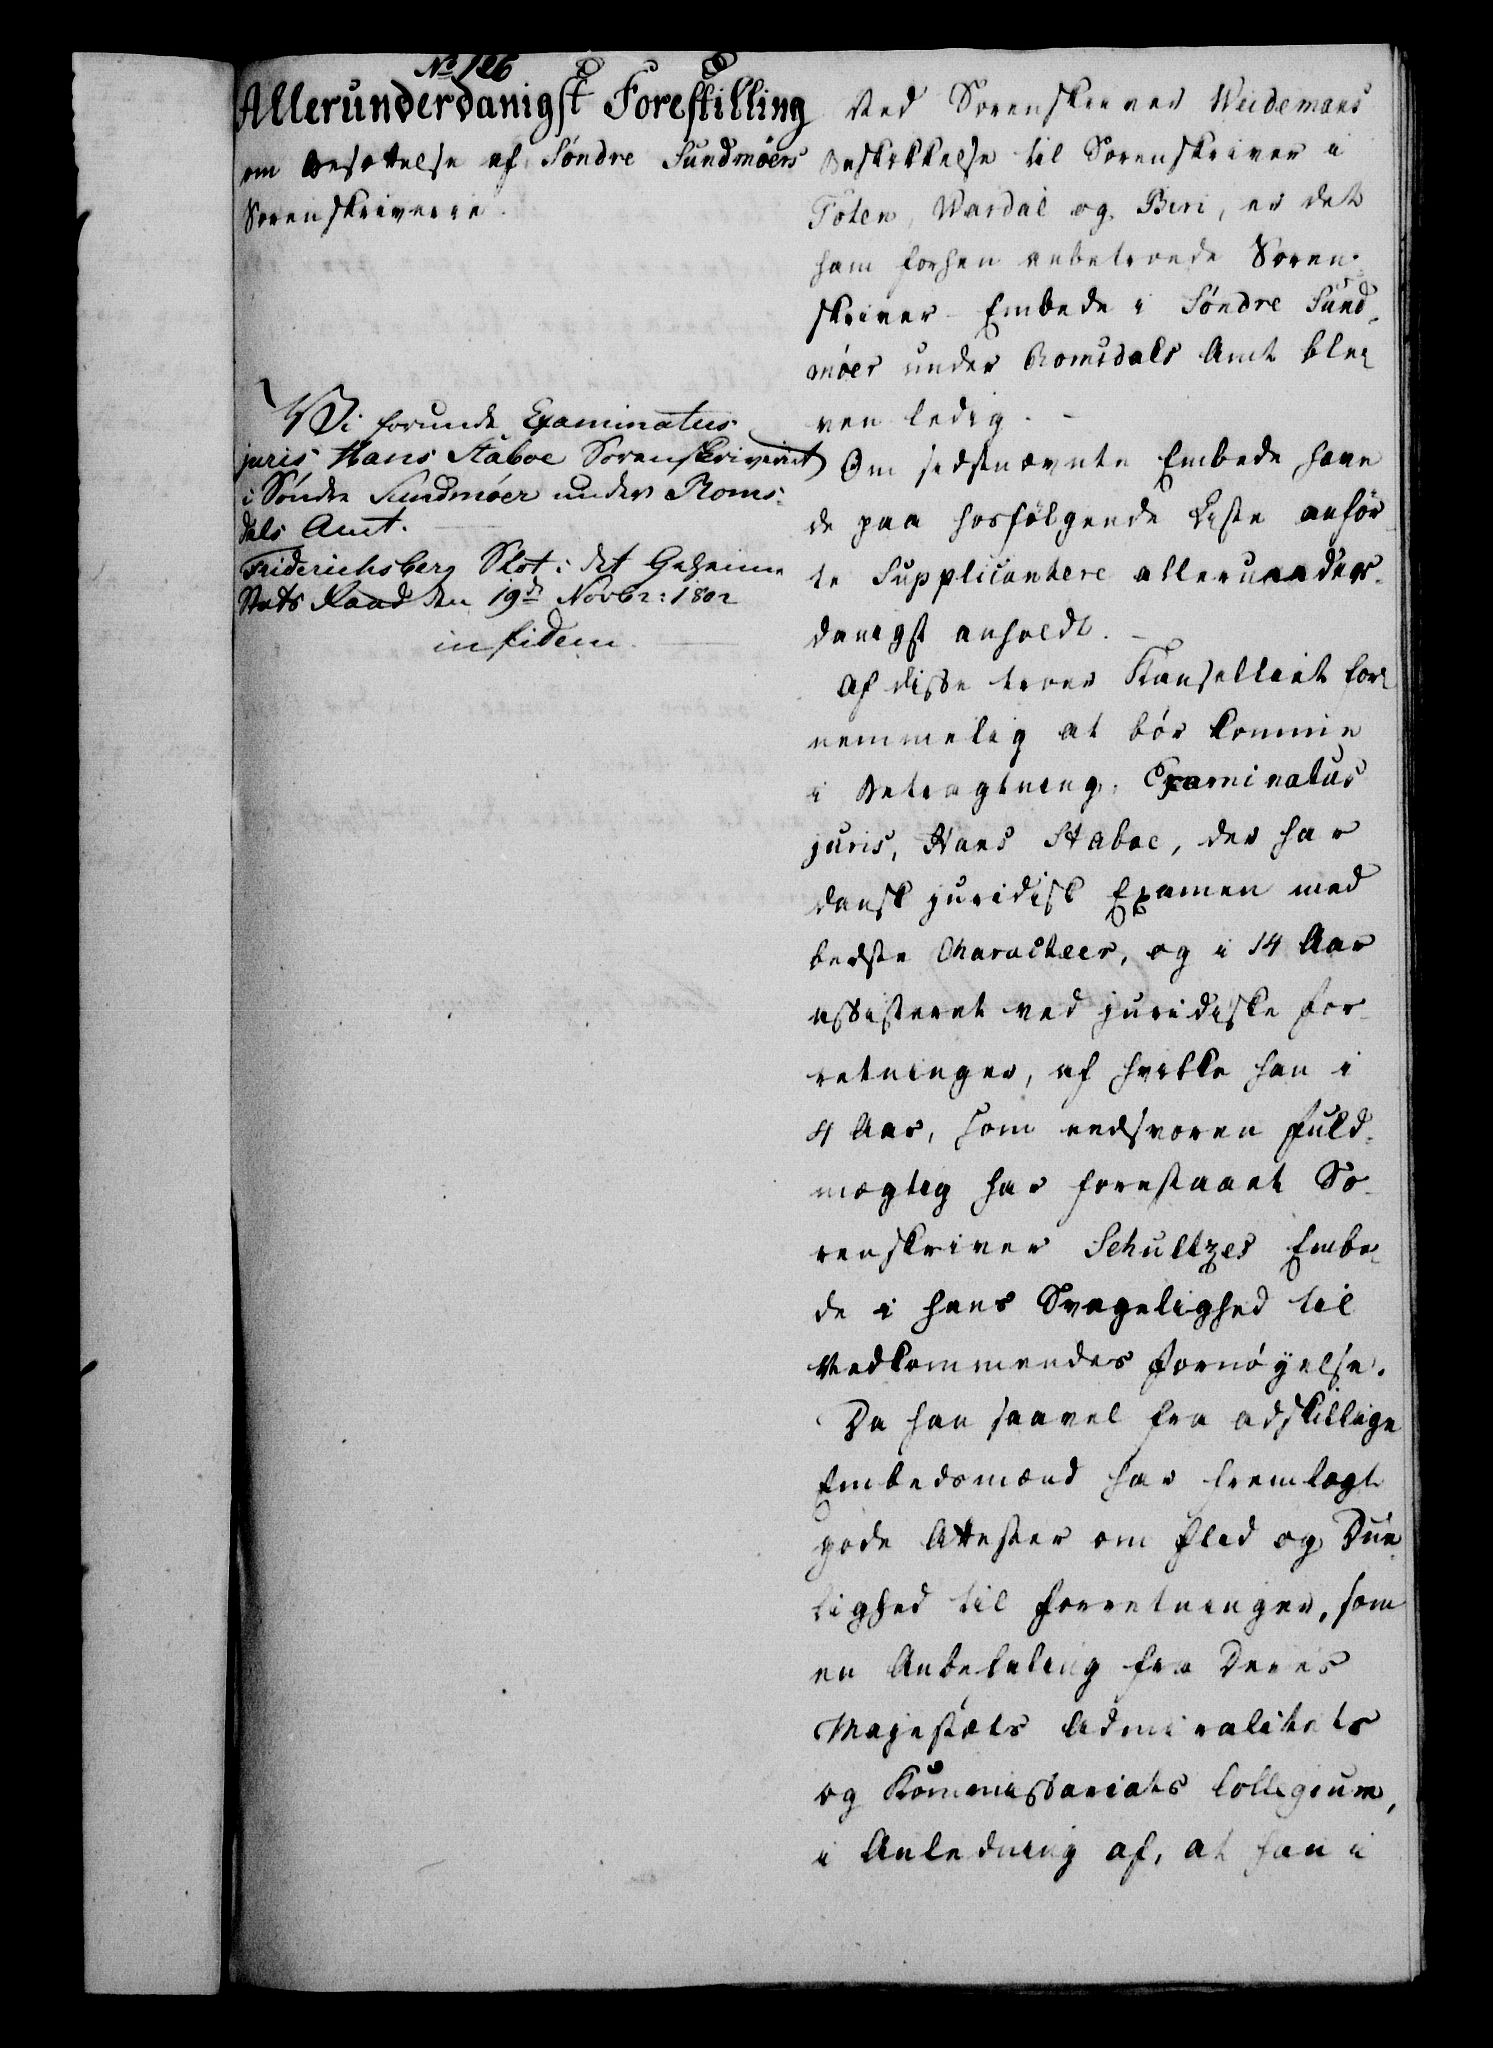 No 126
Allerunderdanigst Forestilling
om Besættelse af Søndre Sundmøers
Sorenskriverie.
Wi forunde Examinatus
juris, Hans Staboe Sorenskriveriet
i Søndre Sundmøer under Roms-
dals Amt.
Friderichsberg Slot i det Geheime
Stats Raad den 19de Novbr: 1802
in fidem.
Ved Sorenskriver Weidemans
Beskikkelse til Sorenskriver i
Toten, Wardal og Biri, er det
ham forhen anbetroede Soren-
skriver-Embede i Søndre Sund-
møer under Romsdals Amt ble-
ven ledig.
Om sidstnævnte Embede have
de paa hosfølgende Liste anfør-
te Supplicantere allerunder-
danigst anholdt.
Af disse troer Kanselliet for-
nemmelig at bør komme
i Betragtning: Examinatus
juris, Hans Staboe, der har
dansk juridisk Examen med
bedste Characteer, og i 14 Aar
assisteret ved juridiske For-
retninger, af hvilke han i
4 Aar, som eedsvoren Fuld-
mægtig har forestaaet So-
renskriver Schultzes Embe-
de i hans Svagelighed til
Vedkommendes Fornøyelse.
Da han saavel fra adskillige
Embedsmænd har fremlagt
gode Attester om Flid og Due-
lighed til Forretninger, som
en Anbefaling fra Deres
Majestæts Admiralitets
og Kommissariats Collegium,
i Anledning af, at han i